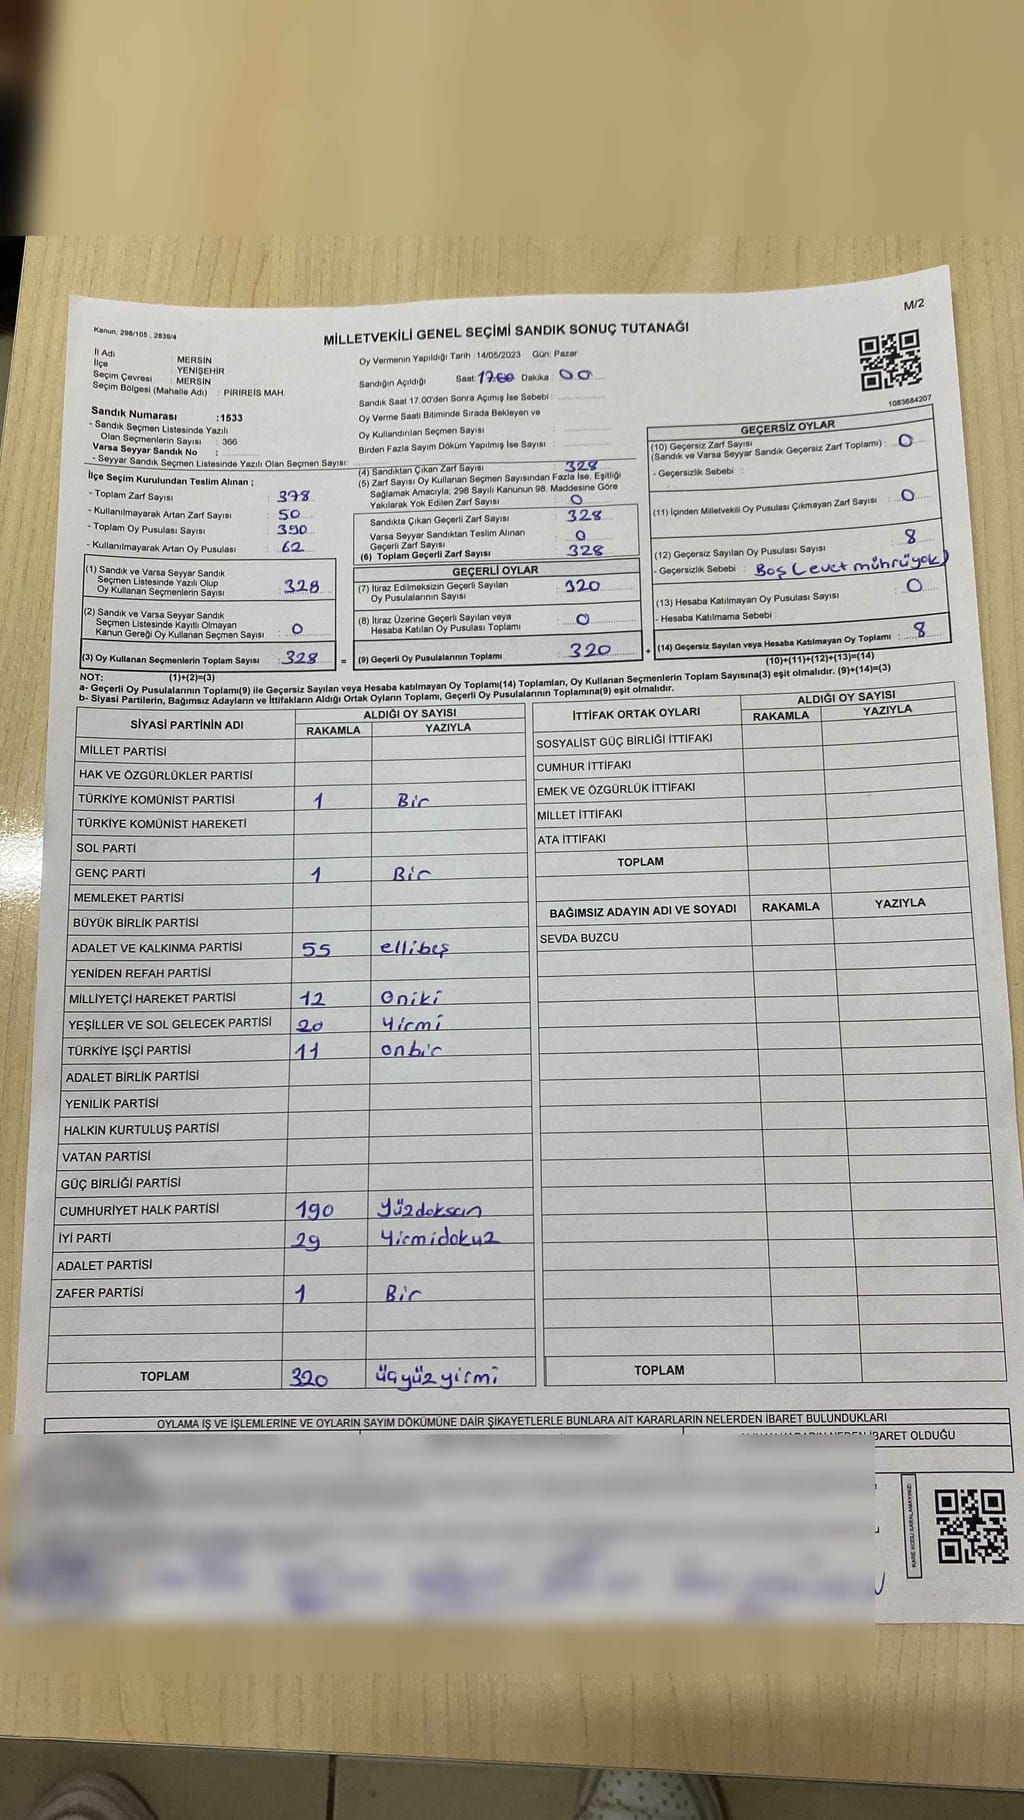 M/2
Kanun; 298/105 , 2839/4
MİLLETVEKİLİ GENEL SEÇİMİ SANDIK SONUÇ TUTANAĞI
İl Adı : MERSİN
İlçe : YENİŞEHİR
Seçim Çevresi : MERSİN
Seçim Bölgesi (Mahalle Adı) : PİRİREİS MAH
Sandık Numarası :1533
- Sandık Seçmen Listesinde Yazılı
Olan Seçmenlerin Sayısı : 366
Varsa Seyyar Sandık No :
- Seyyar Sandık Seçmen Listesinde Yazılı Olan Seçmen Sayısı:
Oy Vermenin Yapıldığı Tarih : 14/05/2023 Gün: Pazar
Sandığın Açıldığı Saat: 17.00 Dakika : 00
Sandık Saat 17.00'den Sonra Açımış İse Sebebi :
Oy Verme Saati Bitiminde Sırada Bekleyen ve
Oy Kullandırılan Seçmen Sayısı :
Birden Fazla Sayım Döküm Yapılmış İse Sayısı :
1083684207
İlçe Seçim Kurulundan Teslim Alınan ;
- Toplam Zarf Sayısı : 378
- Kullanılmayarak Artan Zarf Sayısı : 50
- Toplam Oy Pusulası Sayısı : 390
- Kullanılmayarak Artan Oy Pusulası : 62
(1) Sandık ve Varsa Seyyar Sandık
Seçmen Listesinde Yazılı Olup
Oy Kullanan Seçmenlerin Sayısı : 328
(2) Sandık ve Varsa Seyyar Sandık
Seçmen Listesinde Kayıtlı Olmayan
Kanun Gereği Oy Kullanan Seçmen Sayısı : 0
(3) Oy Kullanan Seçmenlerin Toplam Sayısı : 328 =
(4) Sandıktan Çıkan Zarf Sayısı : 328
(5) Zarf Sayısı Oy Kullanan Seçmen Sayısından Fazla İse, Eşitliği
Sağlamak Amacıyla, 298 Sayılı Kanunun 98. Maddesine Göre
Yakılarak Yok Edilen Zarf Sayısı : 0
Sandıkta Çıkan Geçerli Zarf Sayısı : 328
Varsa Seyyar Sandıktan Teslim Alınan
Geçerli Zarf Sayısı : 0
(6) Toplam Geçerli Zarf Sayısı : 328
GEÇERLİ OYLAR
(7) İtiraz Edilmeksizin Geçerli Sayılan
Oy Pusulalarının Sayısı : 320
(8) İtiraz Üzerine Geçerli Sayılan veya
Hesaba Katılan Oy Pusulası Toplamı : 0
(9) Geçerli Oy Pusulalarının Toplamı : 320 +
GEÇERSİZ OYLAR
(10) Geçersiz Zarf Sayısı
(Sandık ve Varsa Seyyar Sandık Geçersiz Zarf Toplamı) : 0
- Geçersizlik Sebebi :
(11) İçinden Milletvekili Oy Pusulası Çıkmayan Zarf Sayısı : 0
(12) Geçersiz Sayılan Oy Pusulası Sayısı : 8
- Geçersizlik Sebebi : Boş (evet mührü yok)
(13) Hesaba Katılmayan Oy Pusulası Sayısı : 0
- Hesaba Katılmama Sebebi :
(14) Geçersiz Sayılan veya Hesaba Katılmayan Oy Toplamı : 8
NOT: (1)+(2)=(3)
(10)+(11)+(12)+(13)=(14)
a- Geçerli Oy Pusulalarının Toplamı(9) ile Geçersiz Sayılan veya Hesaba katılmayan Oy Toplamı(14) Toplamları, Oy Kullanan Seçmenlerin Toplam Sayısına(3) eşit olmalıdır. (9)+(14)=(3)
b- Siyasi Partilerin, Bağımsız Adayların ve İttifakların Aldığı Ortak Oyların Toplamı, Geçerli Oy Pusulalarının Toplamına(9) eşit olmalıdır.
SİYASİ PARTİNİN ADI ALDIĞI OY SAYISI
RAKAMLA YAZIYLA
MİLLET PARTİSİ
HAK VE ÖZGÜRLÜKLER PARTİSİ
TÜRKİYE KOMÜNİST PARTİSİ 1 Bir
TÜRKİYE KOMÜNİST HAREKETİ
SOL PARTİ
GENÇ PARTİ 1 Bir
MEMLEKET PARTİSİ
BÜYÜK BİRLİK PARTİSİ
ADALET VE KALKINMA PARTİSİ 55 ellibeş
YENİDEN REFAH PARTİSİ
MİLLİYETÇİ HAREKET PARTİSİ 12 Oniki
YEŞİLLER VE SOL GELECEK PARTİSİ 20 Yirmi
TÜRKİYE İŞÇİ PARTİSİ 11 onbir
ADALET BİRLİK PARTİSİ
YENİLİK PARTİSİ
HALKIN KURTULUŞ PARTİSİ
VATAN PARTİSİ
GÜÇ BİRLİĞİ PARTİSİ
CUMHURİYET HALK PARTİSİ 190 Yüzdoksan
İYİ PARTİ 29 Yirmidokuz
ADALET PARTİSİ
ZAFER PARTİSİ 1 Bir
TOPLAM 320 üçyüzyirmi
İTTİFAK ORTAK OYLARI ALDIĞI OY SAYISI
RAKAMLA YAZIYLA
SOSYALİST GÜÇ BİRLİĞİ İTTİFAKI
CUMHUR İTTİFAKI
EMEK VE ÖZGÜRLÜK İTTİFAKI
MİLLET İTTİFAKI
ATA İTTİFAKI
TOPLAM
BAĞIMSIZ ADAYIN ADI VE SOYADI RAKAMLA YAZIYLA
SEVDA BUZCU
TOPLAM
OYLAMA İŞ VE İŞLEMLERİNE VE OYLARIN SAYIM DÖKÜMÜNE DAİR ŞİKAYETLERLE BUNLARA AİT KARARLARIN NELERDEN İBARET BULUNDUKLARI
İBARET OLDUĞU
KARE KODU KARALAMAYINIZ!